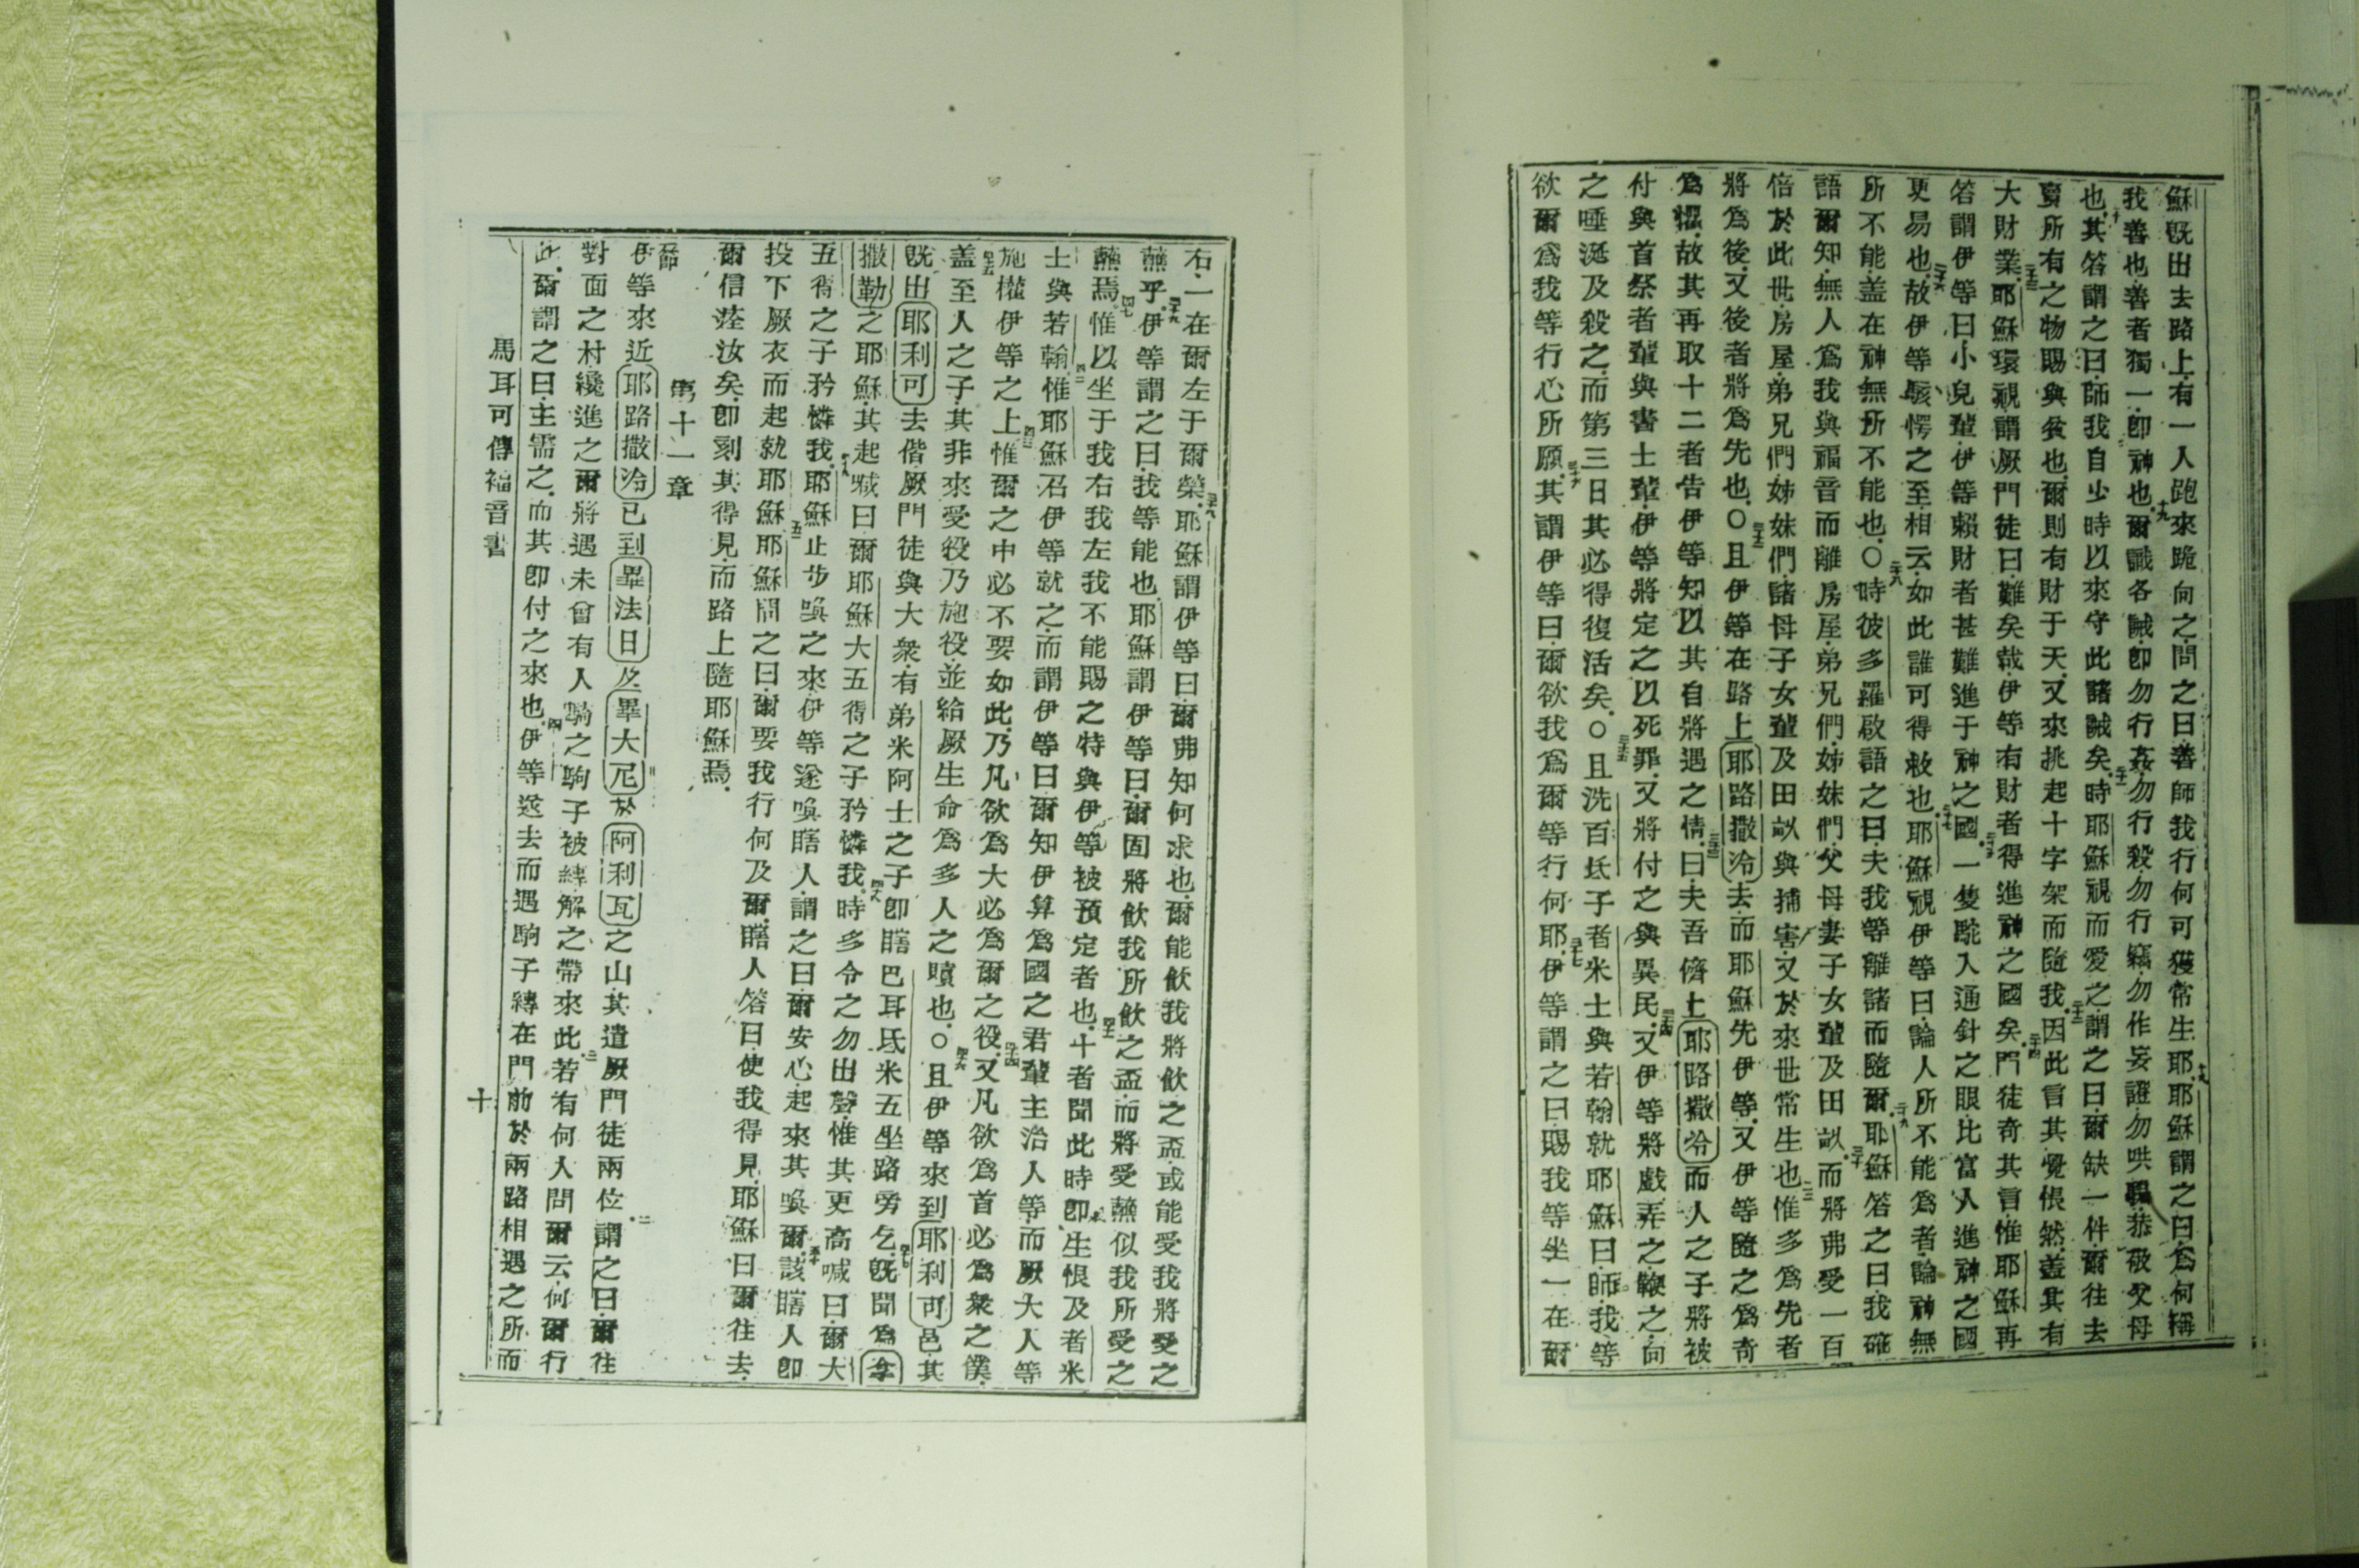 穌既出去路上有一人跑來跪向之問之曰善師我行何可獲常生耶耶穌謂之曰爲何稱
我善也善者獨一卽神也爾識各誡卽勿行姦勿行殺勿行竊勿作妄證勿哄騙恭敬父母
也其答謂之曰師我自少時以來守此諸誡矣時耶穌視而愛之謂之曰爾缺一件爾往去
賣所有之物賜與貧也爾則有財于天又來挑起十字架而隨我因此言其覺悵然蓋其有
大財業耶穌環視謂厥門徒曰難矣哉伊等有財者得進神之國矣門徒奇其言惟耶穌再
答謂伊等曰小兒輩伊等賴財者甚難進于神之國一隻駝入通針之眼比富人進神之國
更易也故伊等駭愕之至相云如此誰可得救也耶穌視伊等曰論人所不能爲者論神無
所不能蓋在神無所不能也○時彼多羅啟語之曰夫我等離諸而隨爾耶穌答之曰我確
語爾知無人爲我與福音而離房屋弟兄們姊妹們父母妻子女輩及田畝而將弗受一百
倍於此世房屋弟兄們姊妹們諸母子女輩及田畝與捕害又於來世常生也惟多爲先者
將爲後又後者將爲先也○且伊等在路上耶路撒冷去而耶穌先伊等又伊等隨之爲奇
爲懼故其再取十二者告伊等知以其自將遇之情曰夫吾儕上耶路撒冷而人之子將被
付與首祭者輩與書士輩伊等將定之以死罪又將付之與異民又伊等將戲弄之鞭之向
之唾涎及殺之而第三日其必得復活矣○且洗百氐子者米士與若翰就耶穌曰師我等
欲爾爲我等行心所願其謂伊等曰爾欲我爲爾等行何耶伊等謂之曰賜我等坐一在爾
右一在爾左于爾榮耶穌謂伊等曰爾弗知何求也爾能飲我將飲之盃或能受我將受之
蘸乎伊等謂之曰我等能也耶穌謂伊等曰爾固將飲我所飲之盃而將受蘸似我所受之
蘸焉惟以坐于我右我左我不能賜之特與伊等被預定者也十者聞此時卽生恨及者米
士與若翰惟耶穌召伊等就之而謂伊等曰爾知伊算爲國之君輩主治人等而厥大人等
施權伊等之上惟爾之中必不要如此乃凡欲爲大必爲爾之役又凡欲爲首必爲衆之僕
盖至人之子其非來受役乃施役並給厥生命爲多人之贖也○且伊等來到耶利可邑其
既出耶利可去偕厥門徒與大衆有弟米阿士之子卽瞎巴耳氐米五坐路旁乞既聞爲拿
撒勒之耶穌其起喊曰爾耶穌大五得之子矜憐我時多令之勿出聲惟其更高喊曰爾大
五得之子矜憐我耶穌止步喚之來伊等遂喚瞎人謂之曰爾安心起來其喚爾該瞎人卽
投下厥衣而起就耶穌耶穌問之曰爾要我行何及爾瞎人答曰使我得見耶穌曰爾往去
爾信㧞汝矣卽刻其得見而路上隨耶穌焉
第十一章
伊等來近耶路撒冷已到畢法日及畢大尼於阿利瓦之山其遣厥門徒兩位謂之曰爾往
對面之村纔進之爾將遇未曾有人騎之駒子被縛解之帶來此若有何人問爾云何爾行
此爾謂之曰主需之而其卽付之來也伊等遂去而遇駒子縛在門前於兩路相遇之所而
馬耳可傳福音書
十